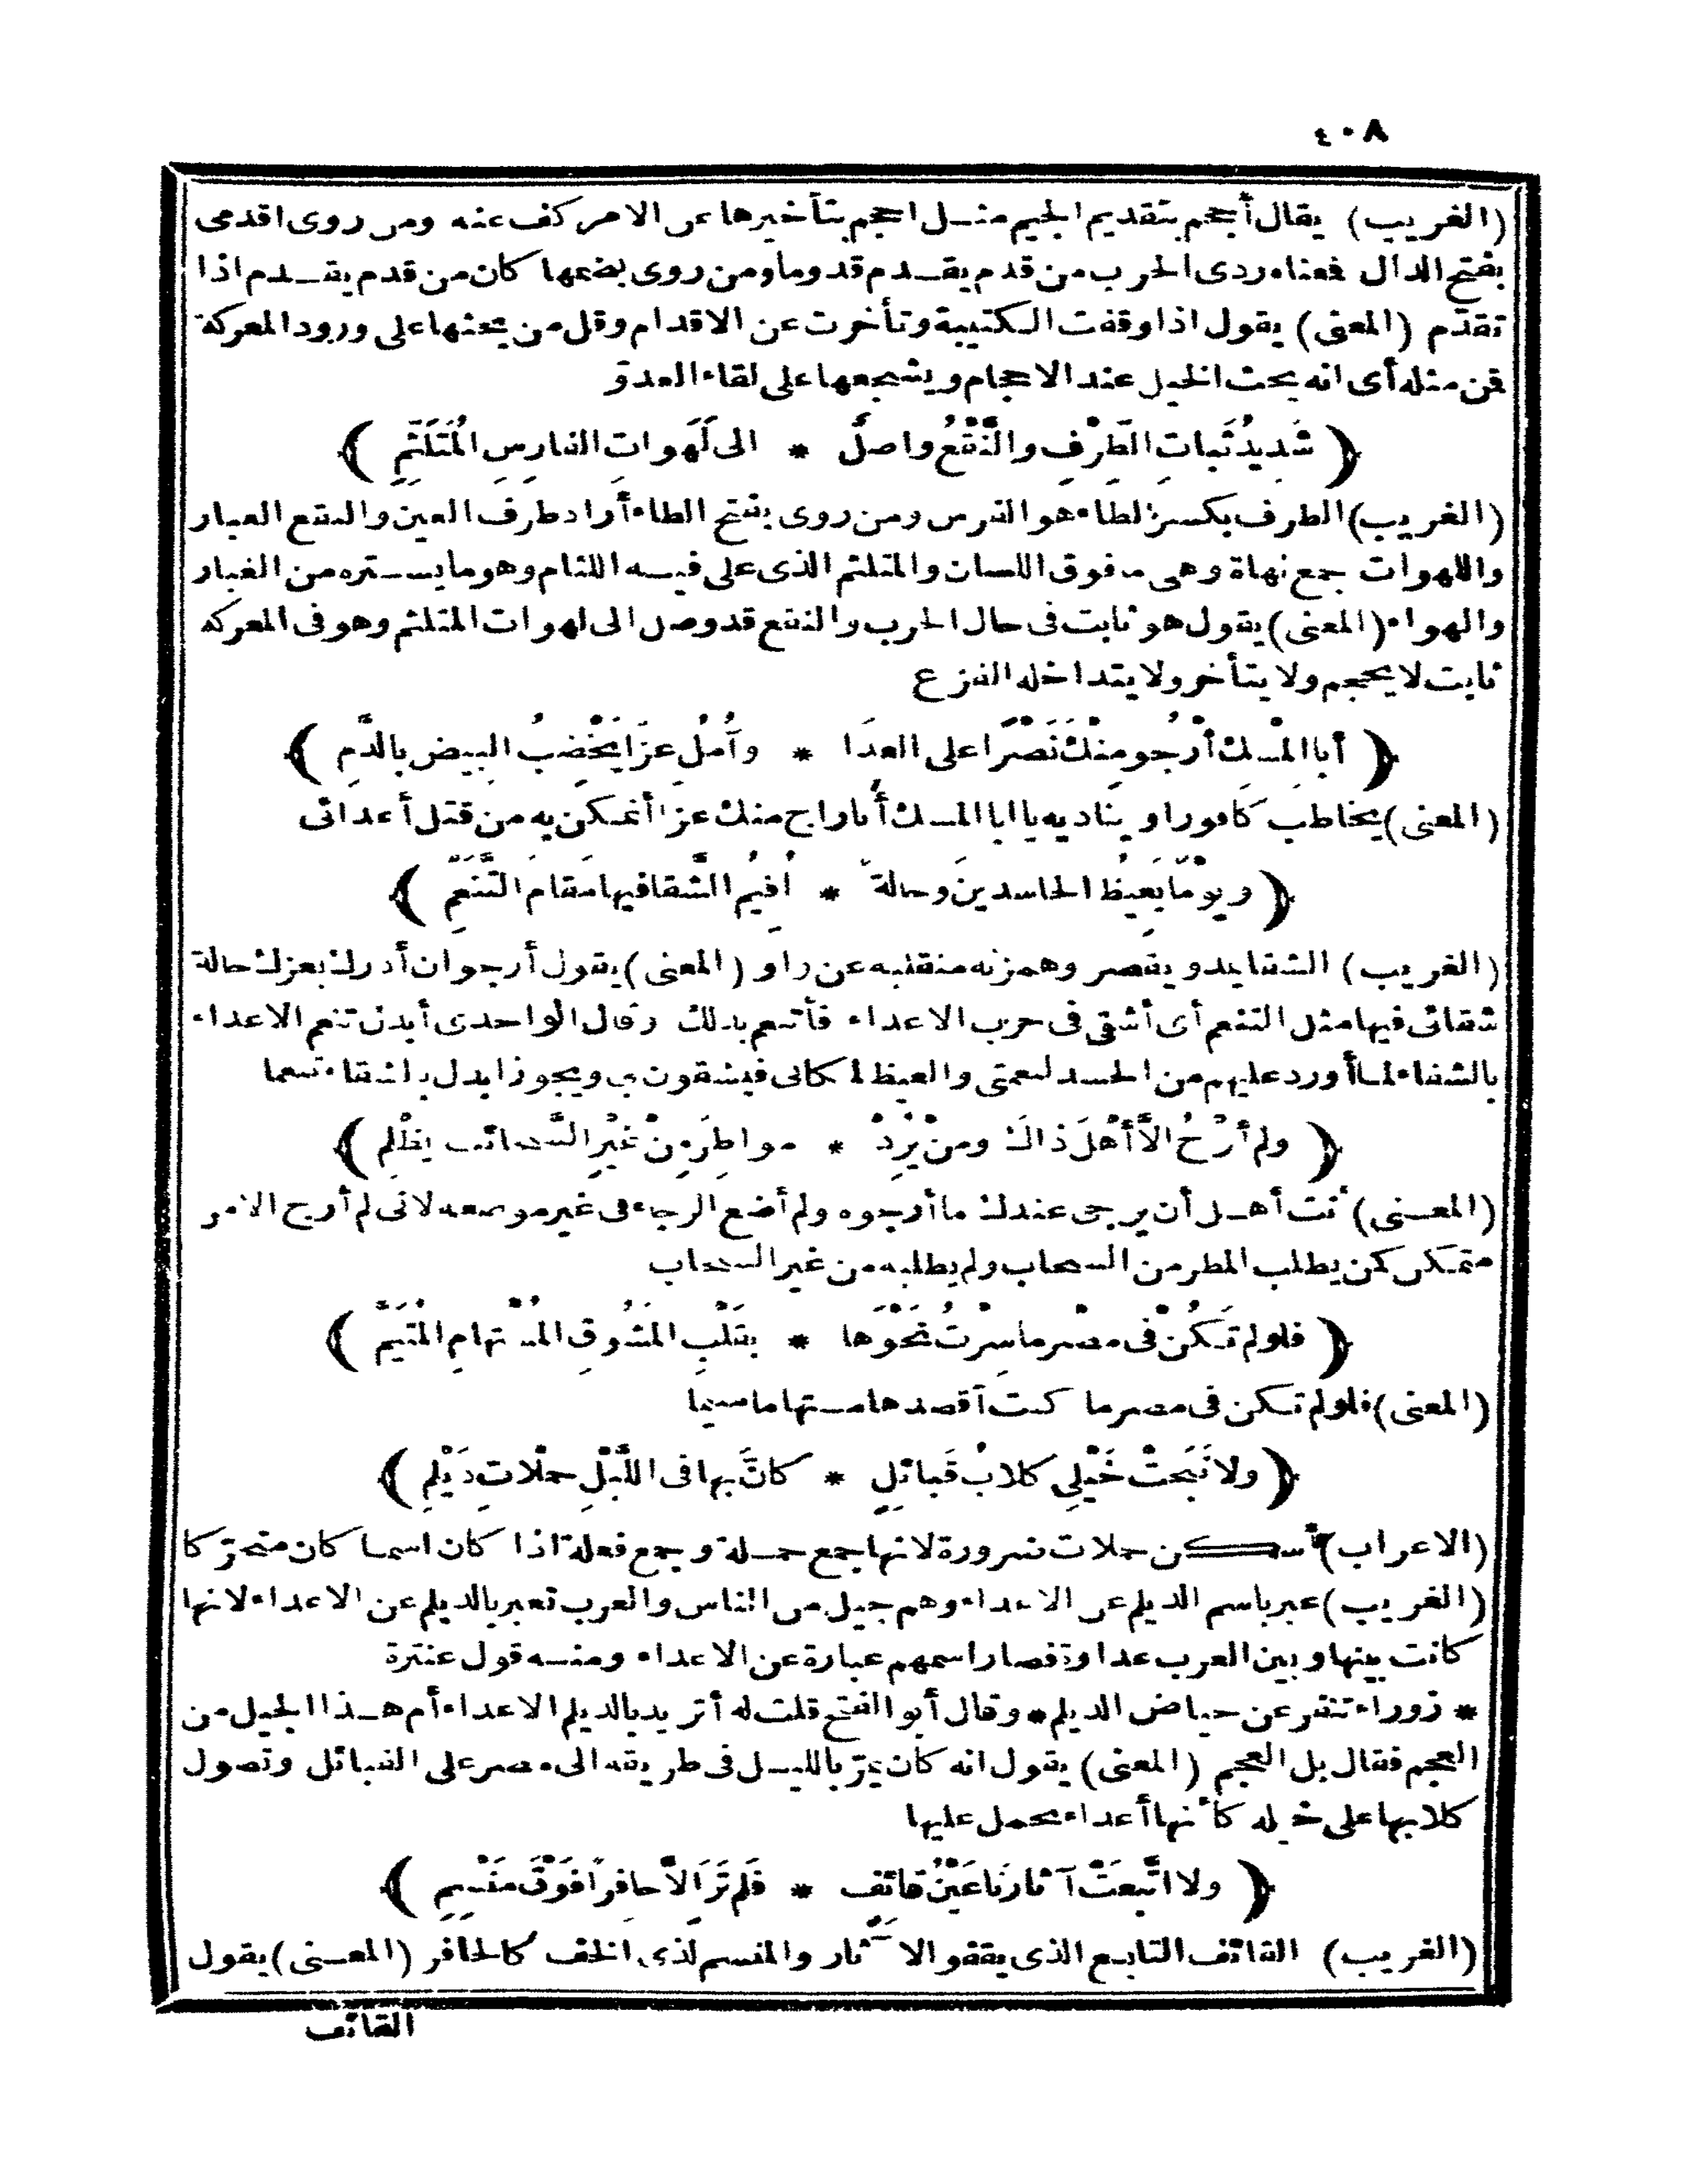 ٤٠٨
(الغريب) يقال أجحم بتقديم الجيم مثل احجم بتأخيرها عن الامر كف عنه ومن روى اقدمى
بفتح الدال فمعناه ردى الحرب من قدم يقدم قدوما ومن روى بضمها كان من قدم يقدم اذا
تقدّم (المعنى) يقول اذا وقفت الكتيبة وتأخرت عن الاقدام وقل من يحثها على ورود المعركة
فمن مثله أى انه يحث الخيل عند الاحجام ويشجعها على لقاء العدوّ
﴿ شَدِيدُ ثَباتِ الطِّرْفِ والنَّقْعُ واصلٌ * الى لَهَواتِ الفارِسِ المُتَلَثِّمِ ﴾
(الغريب) الطرف بكسر الطاء هو الفرس ومن روى بفتح الطاء أراد طرف العين والنقع الغبار
واللهوات جمع لهاة وهى ما فوق اللسان والمتلثم الذى على فيه اللثام وهو ما يستره من الغبار
والهواء (المعنى) يقول هو ثابت فى حال الحرب والنقع قد وصل الى لهوات المتلثم وهو فى المعركة
ثابت لا يحجم ولا يتأخر ولا يتداخله الفزع
﴿ أبا المِسْكِ أَرْجُو مِنْكَ نَصْرًا على العدَا * وآمُلُ عِزًا يَخْضِبُ البِيضَ بالدَّمِ ﴾
(المعنى) يخاطب كافورا ويناديه يا ابا المسك أنا راج منك عزا أتمكن به من قتل أعدائى
﴿ ويوْمًا يَغِيظُ الحاسدِينَ وحالةً * أُقِيمُ الشَّقا فيها مَقامَ التَّنَعُّمِ ﴾
(الغريب) الشقا يمد ويقصر وهمزته منقلبة عن واو (المعنى) يقول أرجو ان أدرك بعزك حالة
شقائى فيها مثل التنعم أى أشقى فى حرب الاعداء فأتنعم بذلك وقال الواحدى أبدل تنعم الاعداء
بالشقاء لما أورد عليهم من الحسد لنعمتى والغيظ لمكانى فيشقون بى ويجوز ابدل بالشقاء تنعما
﴿ ولم أَرْجُ الاَّ أَهْلَ ذاكَ ومنْ يُرِدْ * مواطِرَ مِنْ غَيْرِ السَّحائب يَظْلِمِ ﴾
(المعنى) أنت أهل أن يرجى عندك ما أرجوه ولم أضع الرجاء فى غير موضعه لانى لم أرج الامر
متمكن كمن يطلب المطر من السحاب ولم يطلبه من غير السحاب
﴿ فلو لم تَكُنْ فى مصْرَ ما سِرْتُ نَحْوَها * بقَلْبِ المَشُوقِ المُسْتهامِ المُتَيَّمِ ﴾
(المعنى) فلو لم تكن فى مصر ما كنت أقصدها مستهاما متيما
﴿ ولا نَبَحتْ خَيْلِى كلابُ قَبائلٍ * كانَّ بها فى اللَّيْلِ حمْلاتِ دَيْلَمِ ﴾
(الاعراب) أسكن حملات ضرورة لانها جمع حملة وجمع فعلة اذا كان اسما كان متحرّكا
(الغريب) عبر باسم الديلم عن الاعداء وهم جيل من الناس والعرب تعبر بالديلم عن الاعداء لانها
كانت بينها وبين العرب عداوة فصار اسمهم عبارة عن الاعداء ومنه قول عنترة
* زوراء تنفر عن حياض الديلم * وقال أبو الفتح قلت له أتريد بالديلم الاعداء أم هذا الجيل من
العجم فقال بل العجم (المعنى) يقول انه كان يمرّ بالليل فى طريقه الى مصر على القبائل وتصول
كلابها على خيله كأنها أعداء تحمل عليها
﴿ ولا اتَّبَعَتْ آثارَنا عَيْنُ قائف * فَلم تَرَ الاَّ حافرًا فَوْقَ مَنْسِمِ ﴾
(الغريب) القائف التابع الذى يقفو الآثار والمنسم لذى الخف كالحافر (المعنى) يقول
القائف